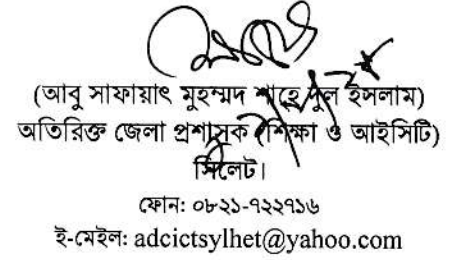 (আবু সাফায়াৎ মুহম্মদ শাহেদুল ইসলাম)
অতিরিক্ত জেলা প্রশাসক (শিক্ষা ও আইসিটি)
সিলেট।
ফোন: ০৮২১-৭২২৭১৬
ই-মেইল: adcictsylhet@yahoo.com